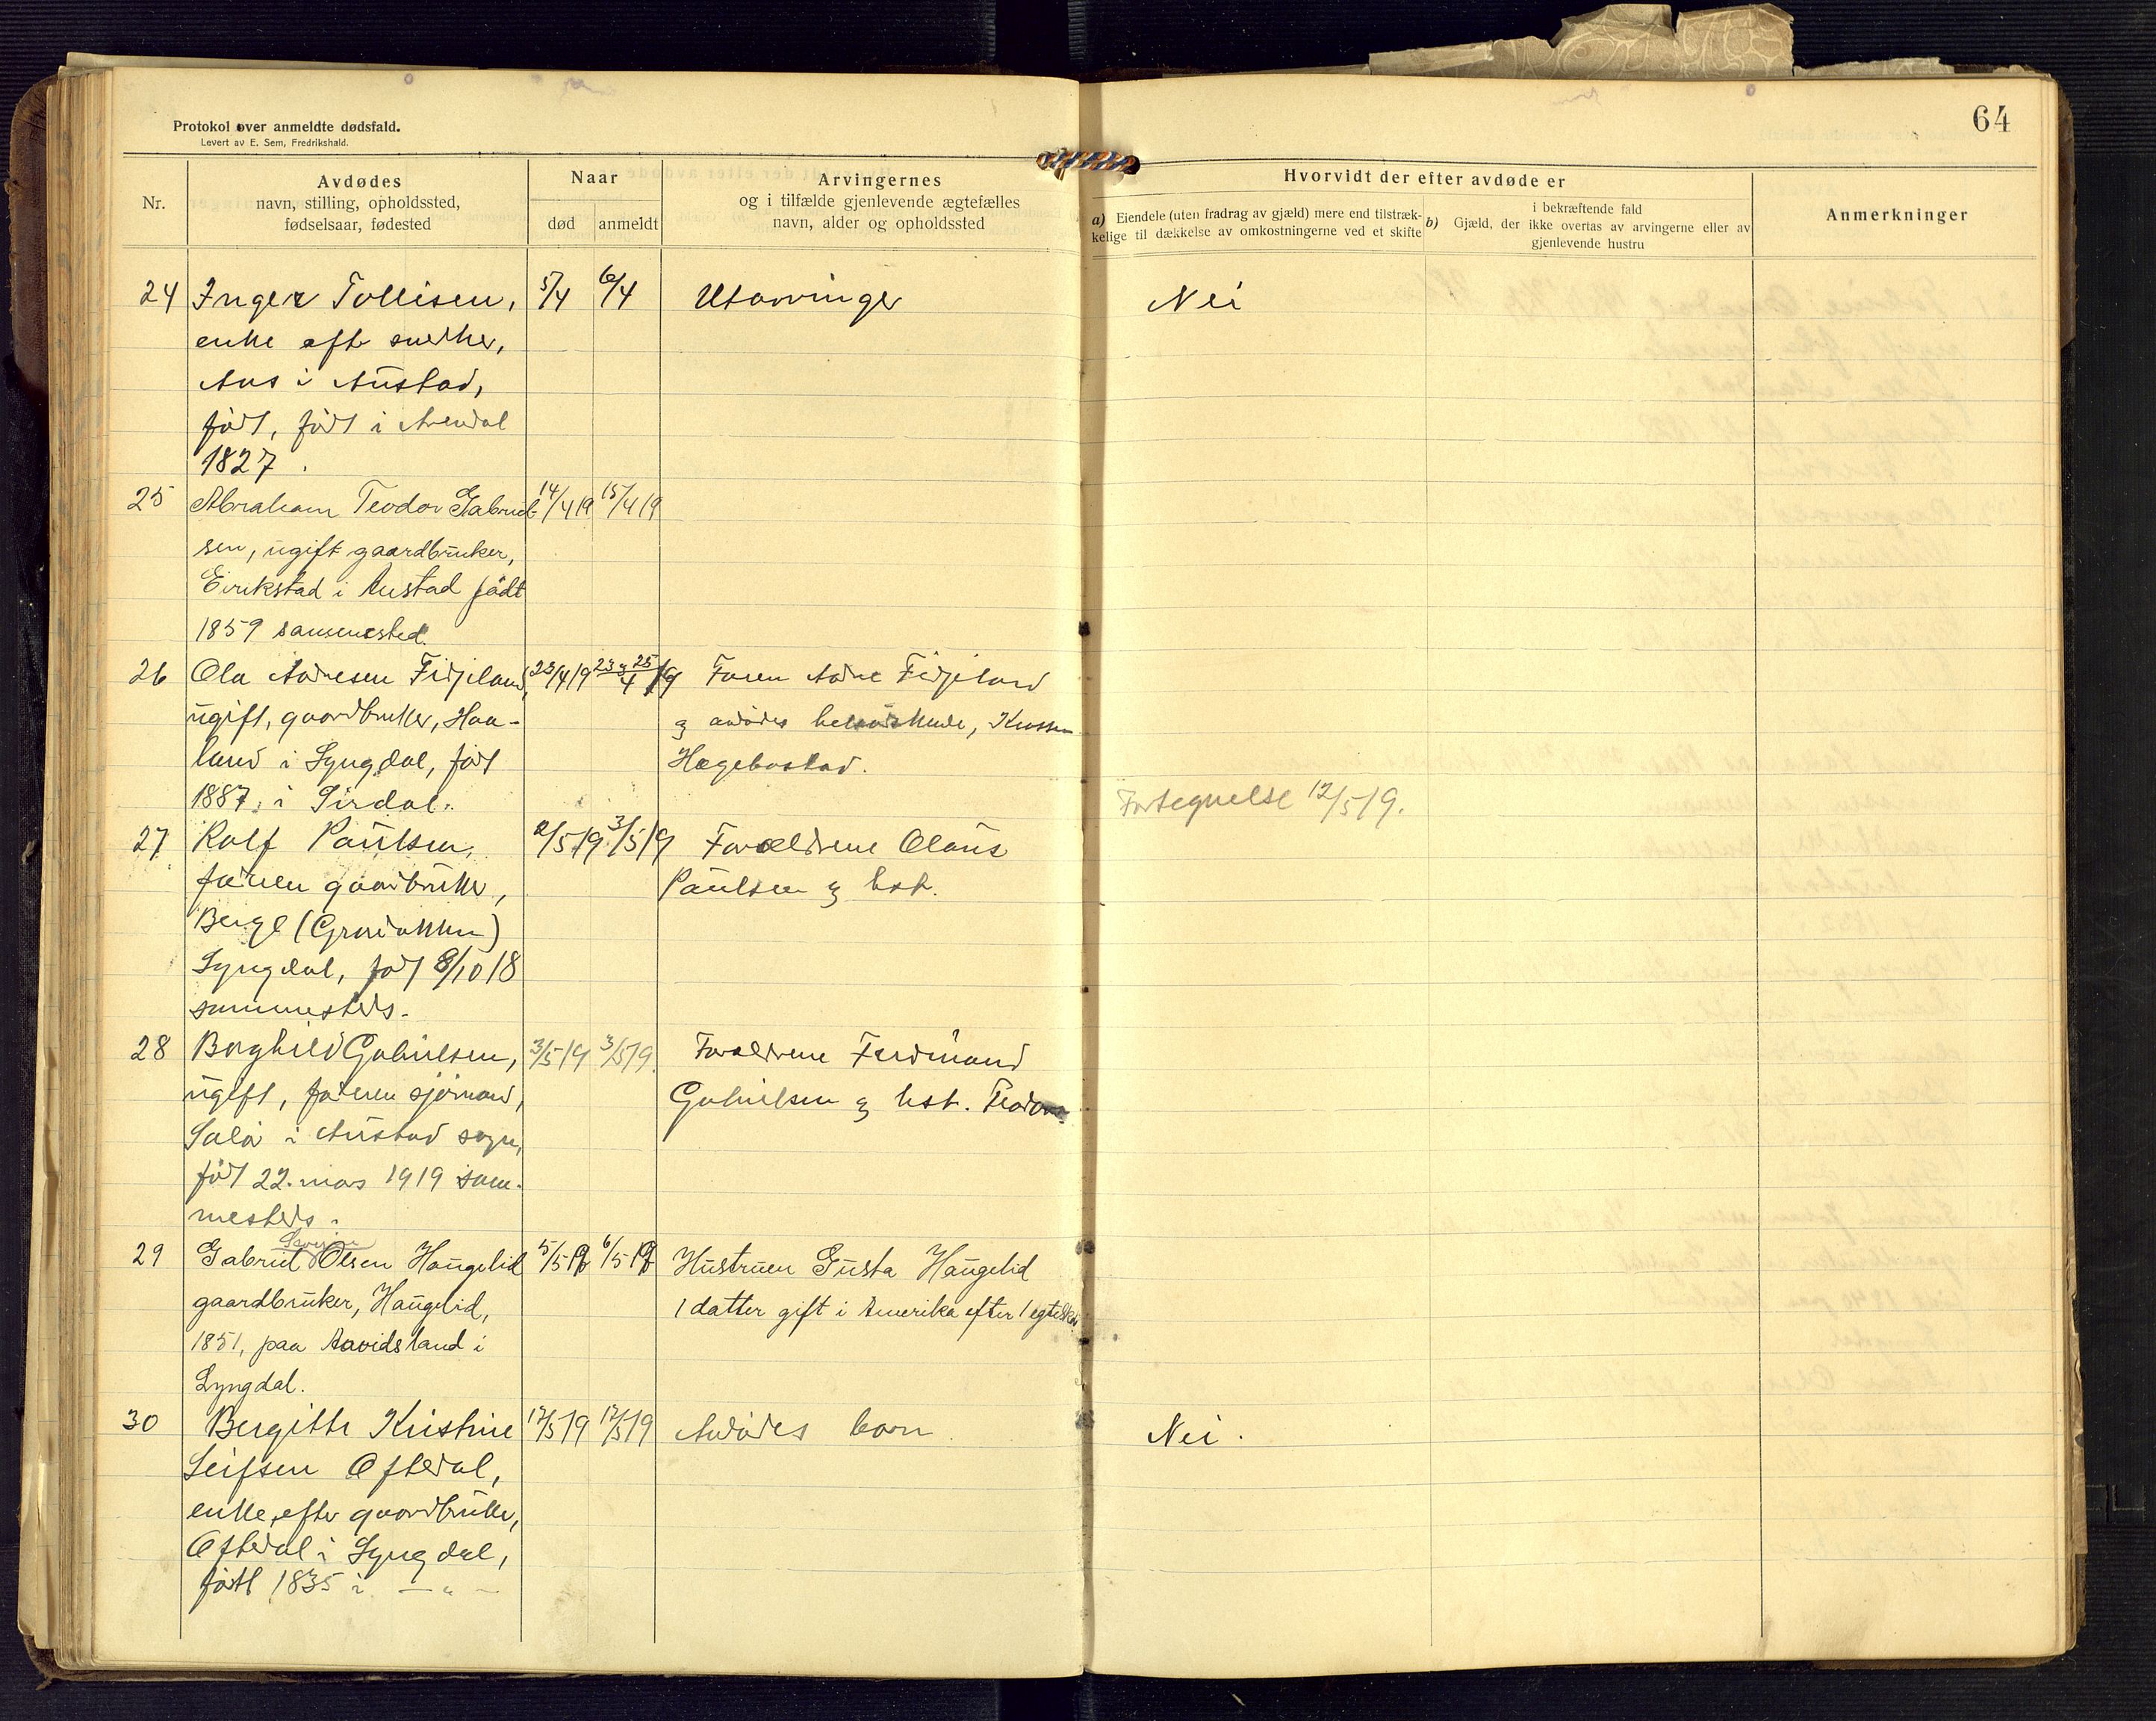 Protokol over anmeldte dødsfald.
Levert av E. Sem, Fredrikshald.
64
Nr.
Avdødes
navn, stilling, opholdssted,
fødselsaar, fødested
Naar
død
anmeldt
Arvingernes
og i tilfælde gjenlevende ægtefælles
navn, alder og opholdssted
Hvorvidt der efter avdøde er
a) Eiendele (uten fradrag av gjæld) mere end tilstræk-
kelige til dækkelse av omkostningerne ved et skifte
i bekræftende fald
b) Gjæld, der ikke overtas av arvingerne eller av
gjenlevende hustru
Anmerkninger
24 Inger Tollisen, 5/4 6/4 Utarvinger Nei
enke eft snekker,
Aas i Austad,
født, født i Arendal
1827.
25 Abraham Teodor Gabriel- 14/4 19 15/4 19
sen, ugift gaardbruker,
Eirikstad i Austad født
1859 sammested.
26 Ola Adnesen Fidjeland, 23/4 19 23 og 25/4 19 Faren Adne Fidjeland
ugift, gaardbruker, Haa- og avdødes
land i Lyngdal, født Hægebostad.
1887 i Sirdal. Fortegnelse 12/5 19.
27 Rolf Paulsen, 2/5 19 3/5 19 Forældrene Olaus
faren gaardbruker, Paulsen og hst.
Berge
Lyngdal, født 8/10 18
sammesteds.
28 Borghild Gabrielsen, 3/5 19 3/5 19. Forældrene Ferdinand
ugift, faren sjømand, Gabrielsen og hst.
i Austad sogn,
født 22. mars 1919 sam-
mesteds.
29 Gabriel Olsen Haugelid 5/5 19 6/5 19 Hustruen Gusta Haugelid
gaardbruker, Haugelid, 1 datter gift i Amerika efter 1 egtesk.
1851, paa Aavidsland i
Lyngdal.
30 Bergitte Kristine 17/5 19 17/5 19 Avdødes barn. Nei.
Leifsen Oftedal,
enke efter gaardbruker,
Oftedal i Lyngdal,
født 1835 i — " —